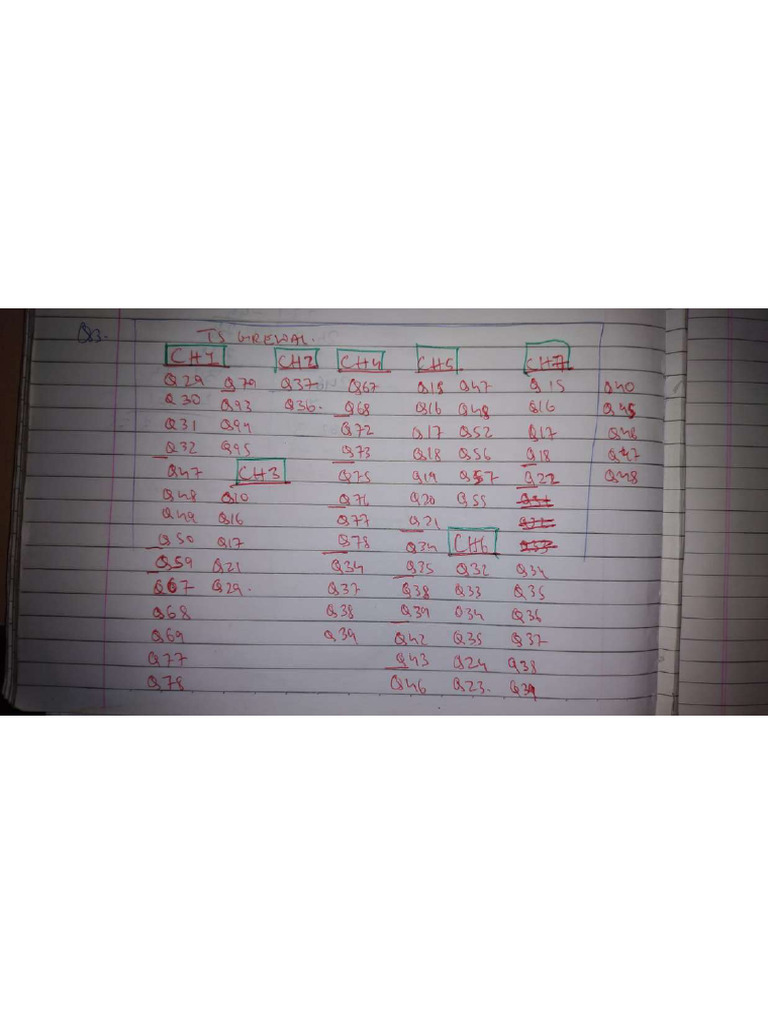 Q3- TS GREWAL.
CH1 CH2 CH4 CH5 CH7
Q29 Q79 Q37 Q67 Q18 Q47 Q15 Q40
Q30 Q93 Q36. Q68 Q16 Q48 Q16 Q45
Q31 Q94 Q72 Q17 Q52 Q17 Q46
Q32 Q95 Q73 Q18 Q56 Q18 Q47
Q47 CH3 Q75 Q19 Q57 Q22 Q48
Q48 Q10 Q76 Q20 Q55
Q49 Q16 Q77 Q21
Q50 Q17 Q78 Q34 CH6
Q59 Q21 Q34 Q35 Q32 Q34
Q67 Q29. Q37 Q38 Q33 Q35
Q68 Q38 Q39 Q34 Q36
Q69 Q39 Q42 Q35 Q37
Q77 Q43 Q24 Q38
Q78 Q46 Q23. Q39